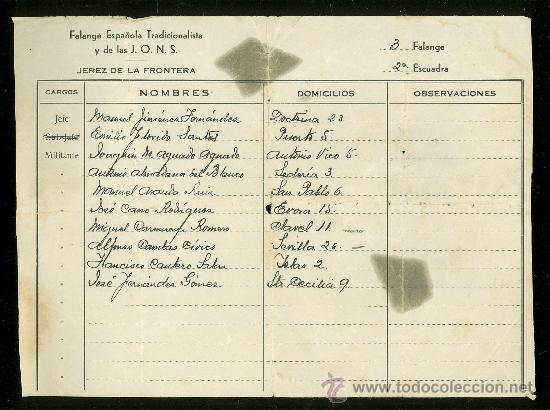 Falange Española Tradicionalista
y de las J. O. N. S.
JEREZ DE LA FRONTERA
3 Falange
2ª Escuadra
CARGOS NOMBRES DOMICILIOS OBSERVACIONES
Jefe Manuel Jiménez Fernández Doctrina 23
Sub-Jefe Emilio Florido Santos Puerto 5.
Militante Joaquín M. Aguado Aguado Antonio Vico 5.
Antonio del Blanco Sedería 3
Manuel Aranda Ruiz San Pablo 6
José Cano Rodríguez Evora 15.
Miguel Romero Clavel 11.
Alfonso Cívico Sevilla 26 —
Francisco Cantero Telas 2
José Fernández Gómez Sta Cecilia 9
todocoleccion
www.todocoleccion.net